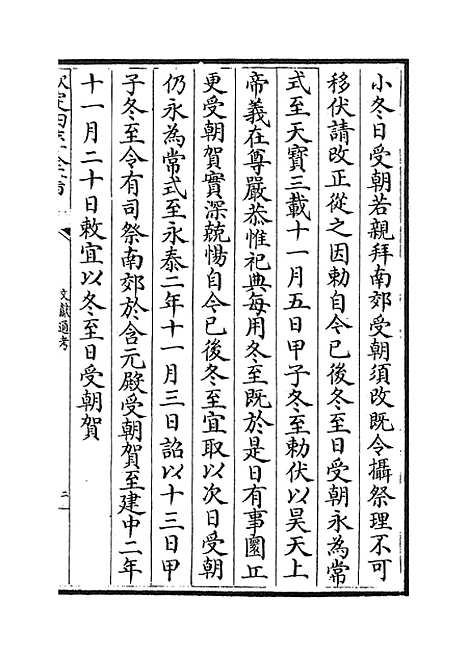 小冬日受朝若親拜南郊受朝須改既令攝祭理不可
移伏請改正從之因勅自今已後冬至日受朝永為常
式至天寶三載十一月五日甲子冬至勅伏以昊天上
帝義在尊嚴恭惟祀典每用冬至既於是日有事圜丘
更受朝賀實深兢惕自今已後冬至宜取以次日受朝
仍永為常式至永泰二年十一月三日詔以十三日甲
子冬至令有司祭南郊於含元殿受朝賀至建中二年
十一月二十日敕宜以冬至日受朝賀
欽定四庫全書
文獻通考